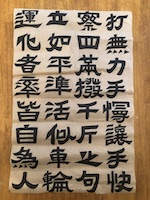 打無力手慢讓手快
察四兩撥千斤之句
立如平準活似車輪
運化者率皆自為人